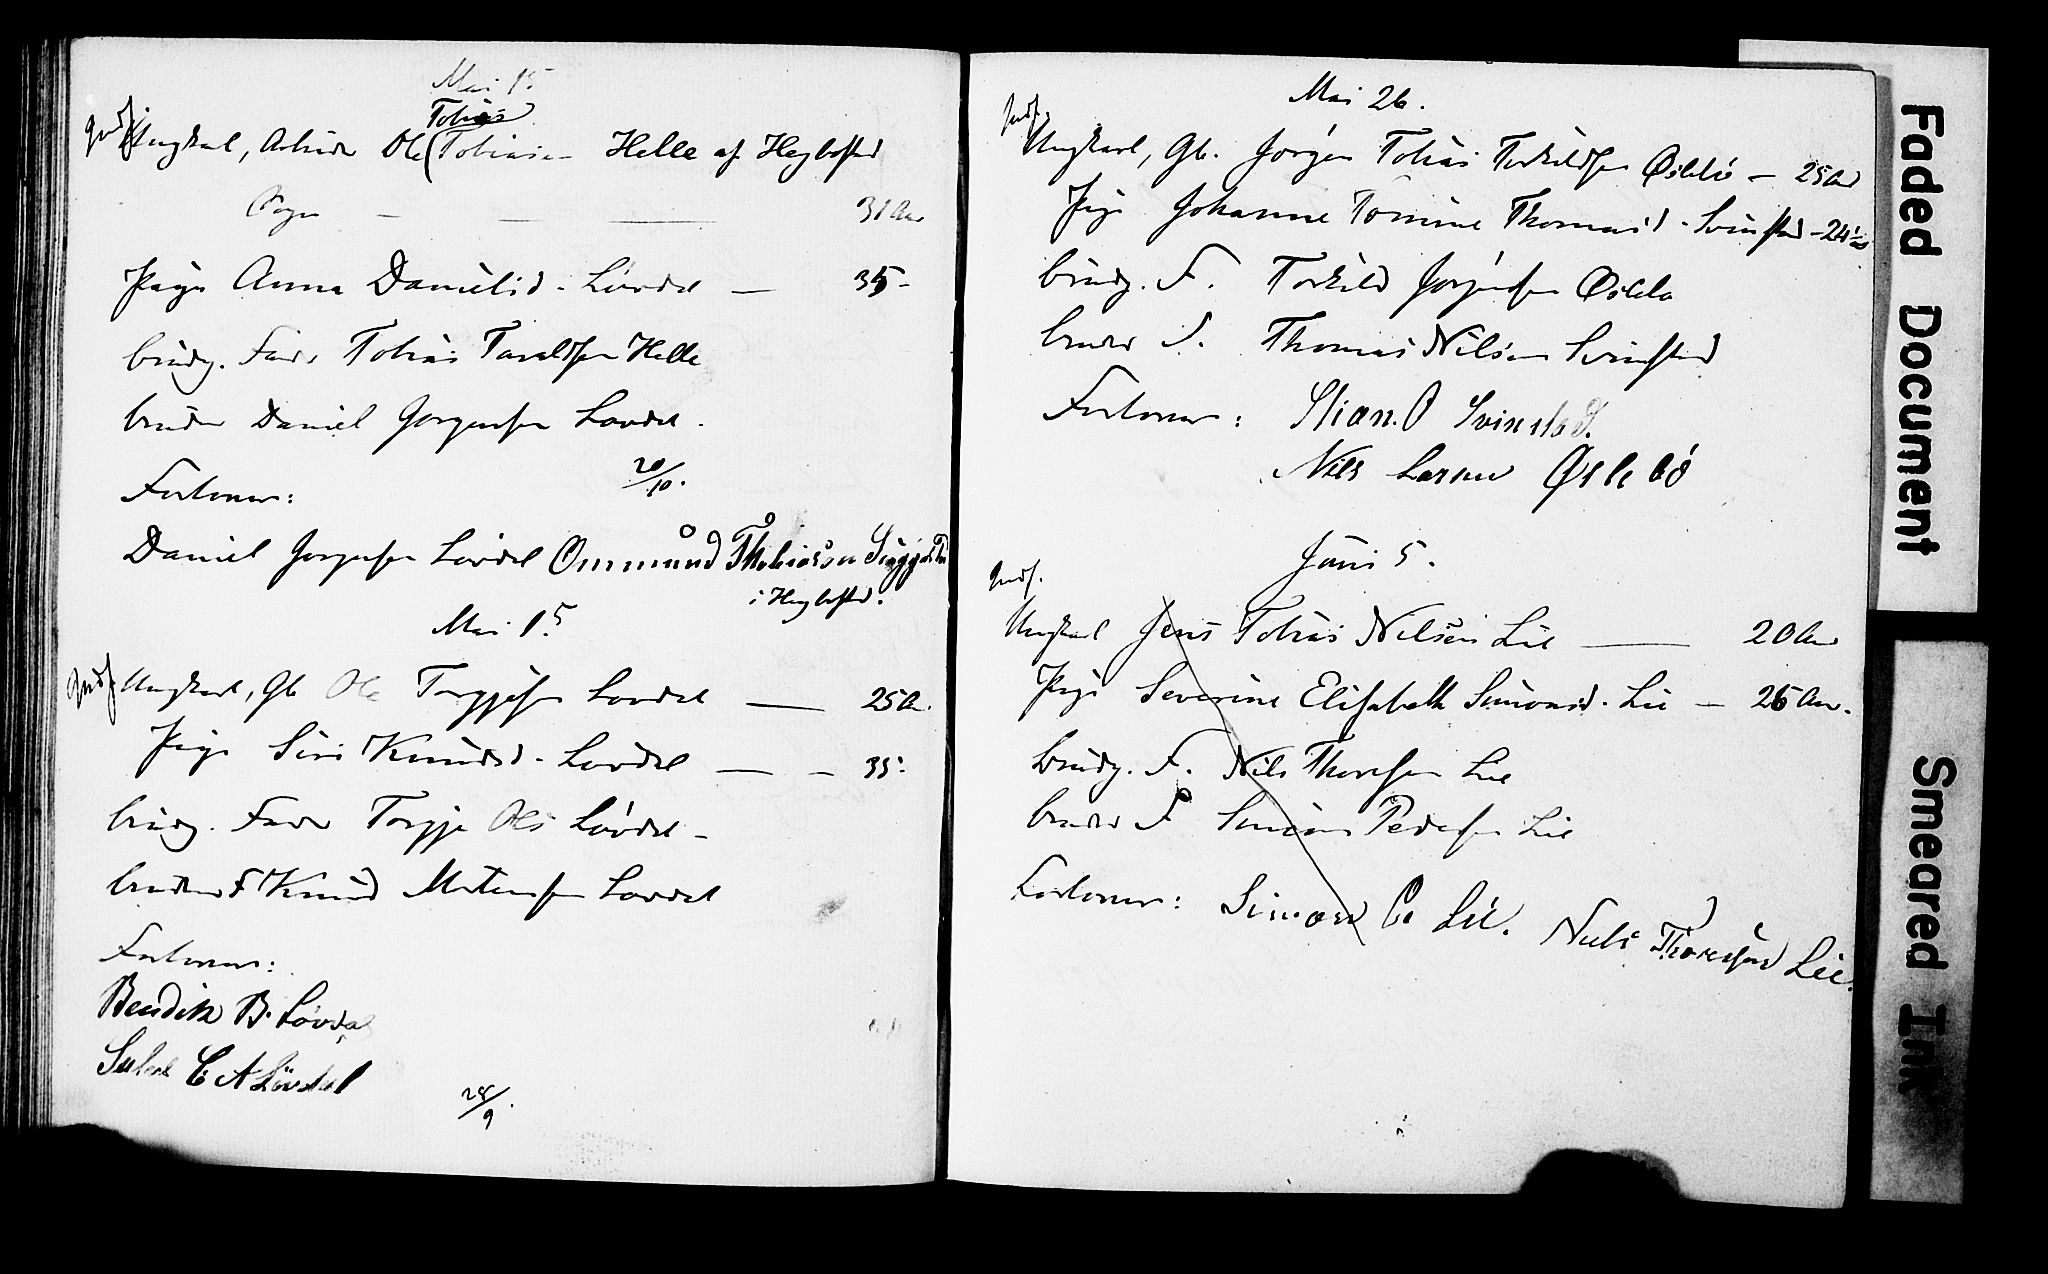 Mai 15
Tobias
Indf.
Ungkarl, Arbeider Ole (Tobiasen Helle af Hegbostad
Sogn — — — 31 Aar
Pige Anna Danielsd. Lövdal — 35 –
brudg. Fader Tobias Taraldsen Helle
bruden Daniel Jörgensen Lövdal.
20/10.
Forlovere:
Daniel Jörgensen Lövdal Ommund Thobiassen
i Hegbostad.
Mai 15
Indf.
Ungkarl, Gb Ole Torgjesen Lovdal — 25 A.
Pige Siri Knudsd. Lövdal — – 35.
brudg. Fader Torgje Ols Lövdal –
brudens F Knud Lovdal
Forlovere:
Bendik B. Lövdal
C A Lövdal
28/9.
Mai 26.
Indf.
Ungkarl, Gb. Jörgen Tobias Torkildsen Øslebö — 25 Aar
Pige Johanne Tomine Thomasd. Svinstad – 24
brudg. F. Torkild Jörgensen Øslebö
brudens F. Thomas Nilsen Svinstad
Forlovere: Stian. O Svinstad.
Nils Larsen Øslebö
Juni 5.
Indf.
Ungkarl Jens Tobias Nilsen Lie — 20 Aar
Pige Severine Elisabeth Simonsd. Lie — 26 Aar.
brudg. F. Nils Thoresen Lie
brudens F Simon Pedersen Lie
Forlovere: Simon P Lie. Niels Thoresen Lie.
Faded Document
Smeared Ink